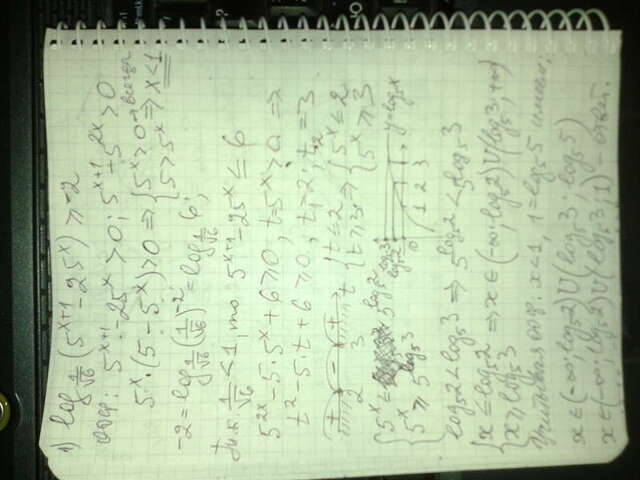 1) log_{1/√6} (5^{x+1} - 25^x) ≥ -2
5^{x+1} - 25^x > 0; 5^{x+1} - 5^{2x} > 0
5^x · (5 - 5^x) > 0 ⇒ { 5^x > 0 - всегда 5 > 5^x ⇒ x < 1
-2 = log_{1/√6} (1/√6)^{-2} = log_{1/√6} 6;
т.к. 1/√6 < 1, то 5^{x+1} - 25^x ≤ 6
5^{2x} - 5·5^x + 6 ≥ 0, t = 5^x > 0 ⇒
t² - 5·t + 6 ≥ 0, t₁ = 2; t₂ = 3
2 3 t { t ≤ 2 t ≥ 3 ⇒ { 5^x ≤ 2 5^x ≥ 3
{ 5^x ≤ 5^{log_5 2} 5^x ≥ 5^{log_5 3} log_5 3 log_5 2 0 1 2 3 y = log_5 x
log_5 2 < log_5 3 ⇒ 5^{log_5 2} < 5^{log_5 3}
{ x ≤ log_5 2 x ≥ log_5 3 ⇒ x ∈ (-∞; log_5 2) ∪ (log_5 3; +∞)
Учитывая x < 1, 1 = log_5 5 имеем:
x ∈ (-∞; log_5 2) ∪ (log_5 3; log_5 5)
x ∈ (-∞; log_5 2) ∪ (log_5 3; 1) - ответ.